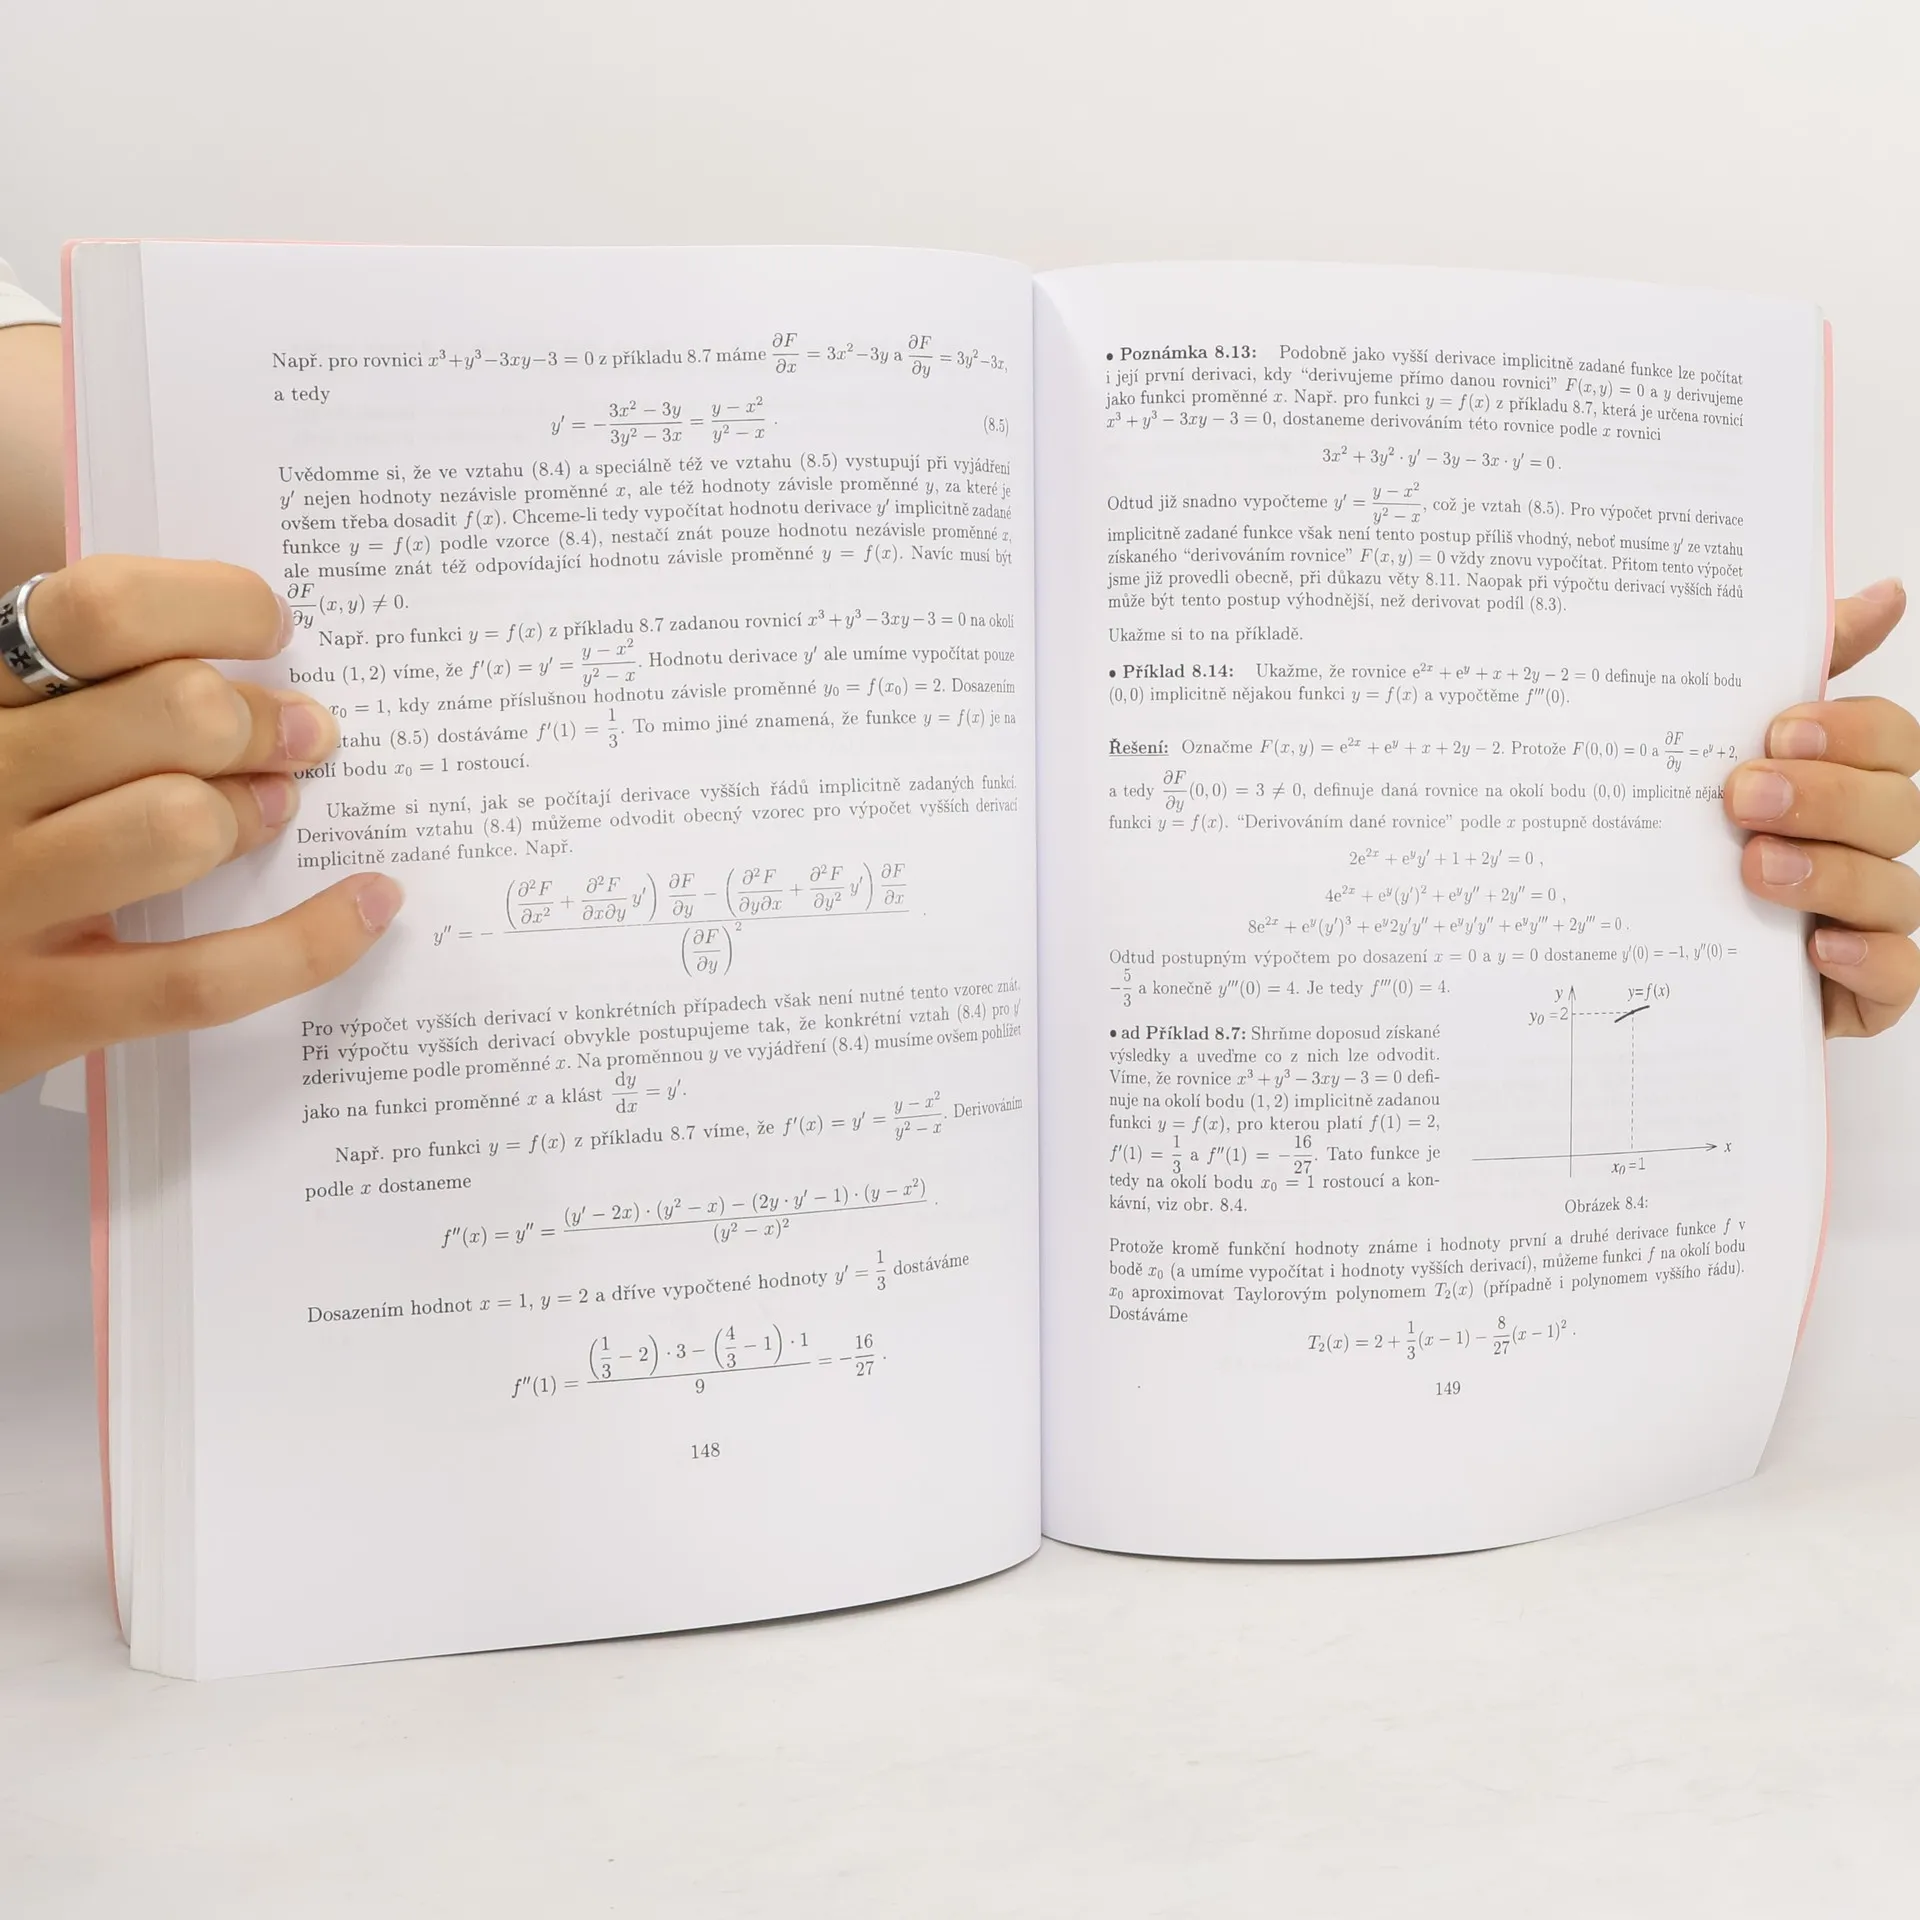 Např. pro rovnici x³+y³−3xy−3 = 0 z příkladu 8.7 máme ∂F/∂x = 3x²−3y a ∂F/∂y = 3y²−3x,
a tedy
y′ = −(3x² − 3y)/(3y² − 3x) = (y − x²)/(y² − x) . (8.5)
Uvědomme si, že ve vztahu (8.4) a speciálně též ve vztahu (8.5) vystupují při vyjádření
y′ nejen hodnoty nezávisle proměnné x, ale též hodnoty závisle proměnné y, za které je
ovšem třeba dosadit f(x). Chceme-li tedy vypočítat hodnotu derivace y′ implicitně zadané
funkce y = f(x) podle vzorce (8.4), nestačí znát pouze hodnotu nezávisle proměnné x,
ale musíme znát též odpovídající hodnotu závisle proměnné y = f(x). Navíc musí být
∂F/∂y (x, y) ≠ 0.
Např. pro funkci y = f(x) z příkladu 8.7 zadanou rovnicí x³+y³−3xy−3 = 0 na okolí
bodu (1, 2) víme, že f′(x) = y′ = (y − x²)/(y² − x). Hodnotu derivace y′ ale umíme vypočítat pouze
x₀ = 1, kdy známe příslušnou hodnotu závisle proměnné y₀ = f(x₀) = 2. Dosazením
(8.5) dostáváme f′(1) = 1/3. To mimo jiné znamená, že funkce y = f(x) je na
okolí bodu x₀ = 1 rostoucí.
Ukažme si nyní, jak se počítají derivace vyšších řádů implicitně zadaných funkcí.
Derivováním vztahu (8.4) můžeme odvodit obecný vzorec pro výpočet vyšších derivací
implicitně zadané funkce. Např.
y″ = − ((∂²F/∂x² + ∂²F/∂x∂y y′) ∂F/∂y − (∂²F/∂y∂x + ∂²F/∂y² y′) ∂F/∂x)/(∂F/∂y)² .
Pro výpočet vyšších derivací v konkrétních případech však není nutné tento vzorec znát.
Při výpočtu vyšších derivací obvykle postupujeme tak, že konkrétní vztah (8.4) pro y′
zderivujeme podle proměnné x. Na proměnnou y ve vyjádření (8.4) musíme ovšem pohlížet
jako na funkci proměnné x a klást dy/dx = y′.
Např. pro funkci y = f(x) z příkladu 8.7 víme, že f′(x) = y′ = (y − x²)/(y² − x). Derivováním
podle x dostaneme
f″(x) = y″ = ((y′ − 2x) · (y² − x) − (2y · y′ − 1) · (y − x²))/(y² − x)² .
Dosazením hodnot x = 1, y = 2 a dříve vypočtené hodnoty y′ = 1/3 dostáváme
f″(1) = ((1/3 − 2) · 3 − (4/3 − 1) · 1)/9 = −16/27 .
148
• Poznámka 8.13: Podobně jako vyšší derivace implicitně zadané funkce lze počítat
i její první derivaci, kdy “derivujeme přímo danou rovnici” F(x, y) = 0 a y derivujeme
jako funkci proměnné x. Např. pro funkci y = f(x) z příkladu 8.7, která je určena rovnicí
x³ + y³ − 3xy − 3 = 0, dostaneme derivováním této rovnice podle x rovnici
3x² + 3y² · y′ − 3y − 3x · y′ = 0 .
Odtud již snadno vypočteme y′ = (y − x²)/(y² − x), což je vztah (8.5). Pro výpočet první derivace
implicitně zadané funkce však není tento postup příliš vhodný, neboť musíme y′ ze vztahu
získaného “derivováním rovnice” F(x, y) = 0 vždy znovu vypočítat. Přitom tento výpočet
jsme již provedli obecně, při důkazu věty 8.11. Naopak při výpočtu derivací vyšších řádů
může být tento postup výhodnější, než derivovat podíl (8.3).
Ukažme si to na příkladě.
• Příklad 8.14: Ukažme, že rovnice e²ˣ + eʸ + x + 2y − 2 = 0 definuje na okolí bodu
(0, 0) implicitně nějakou funkci y = f(x) a vypočtěme f‴(0).
Řešení: Označme F(x, y) = e²ˣ + eʸ + x + 2y − 2. Protože F(0, 0) = 0 a ∂F/∂y = eʸ + 2,
a tedy ∂F/∂y (0, 0) = 3 ≠ 0, definuje daná rovnice na okolí bodu (0, 0) implicitně nějak
funkci y = f(x). “Derivováním dané rovnice” podle x postupně dostáváme:
2e²ˣ + eʸy′ + 1 + 2y′ = 0 ,
4e²ˣ + eʸ(y′)² + eʸy″ + 2y″ = 0 ,
8e²ˣ + eʸ(y′)³ + eʸ2y′y″ + eʸy′y″ + eʸy‴ + 2y‴ = 0 .
Odtud postupným výpočtem po dosazení x = 0 a y = 0 dostaneme y′(0) = −1, y″(0) =
−5/3 a konečně y‴(0) = 4. Je tedy f‴(0) = 4.
• ad Příklad 8.7: Shrňme doposud získané
výsledky a uveďme co z nich lze odvodit.
Víme, že rovnice x³ + y³ − 3xy − 3 = 0 defi-
nuje na okolí bodu (1, 2) implicitně zadanou
funkci y = f(x), pro kterou platí f(1) = 2,
f′(1) = 1/3 a f″(1) = −16/27. Tato funkce je
tedy na okolí bodu x₀ = 1 rostoucí a kon-
kávní, viz obr. 8.4.
y
y=f(x)
y₀ =2
x
x₀ =1
Obrázek 8.4:
Protože kromě funkční hodnoty známe i hodnoty první a druhé derivace funkce f v
bodě x₀ (a umíme vypočítat i hodnoty vyšších derivací), můžeme funkci f na okolí bodu
x₀ aproximovat Taylorovým polynomem T₂(x) (případně i polynomem vyššího řádu).
Dostáváme
T₂(x) = 2 + 1/3(x − 1) − 8/27(x − 1)² .
149